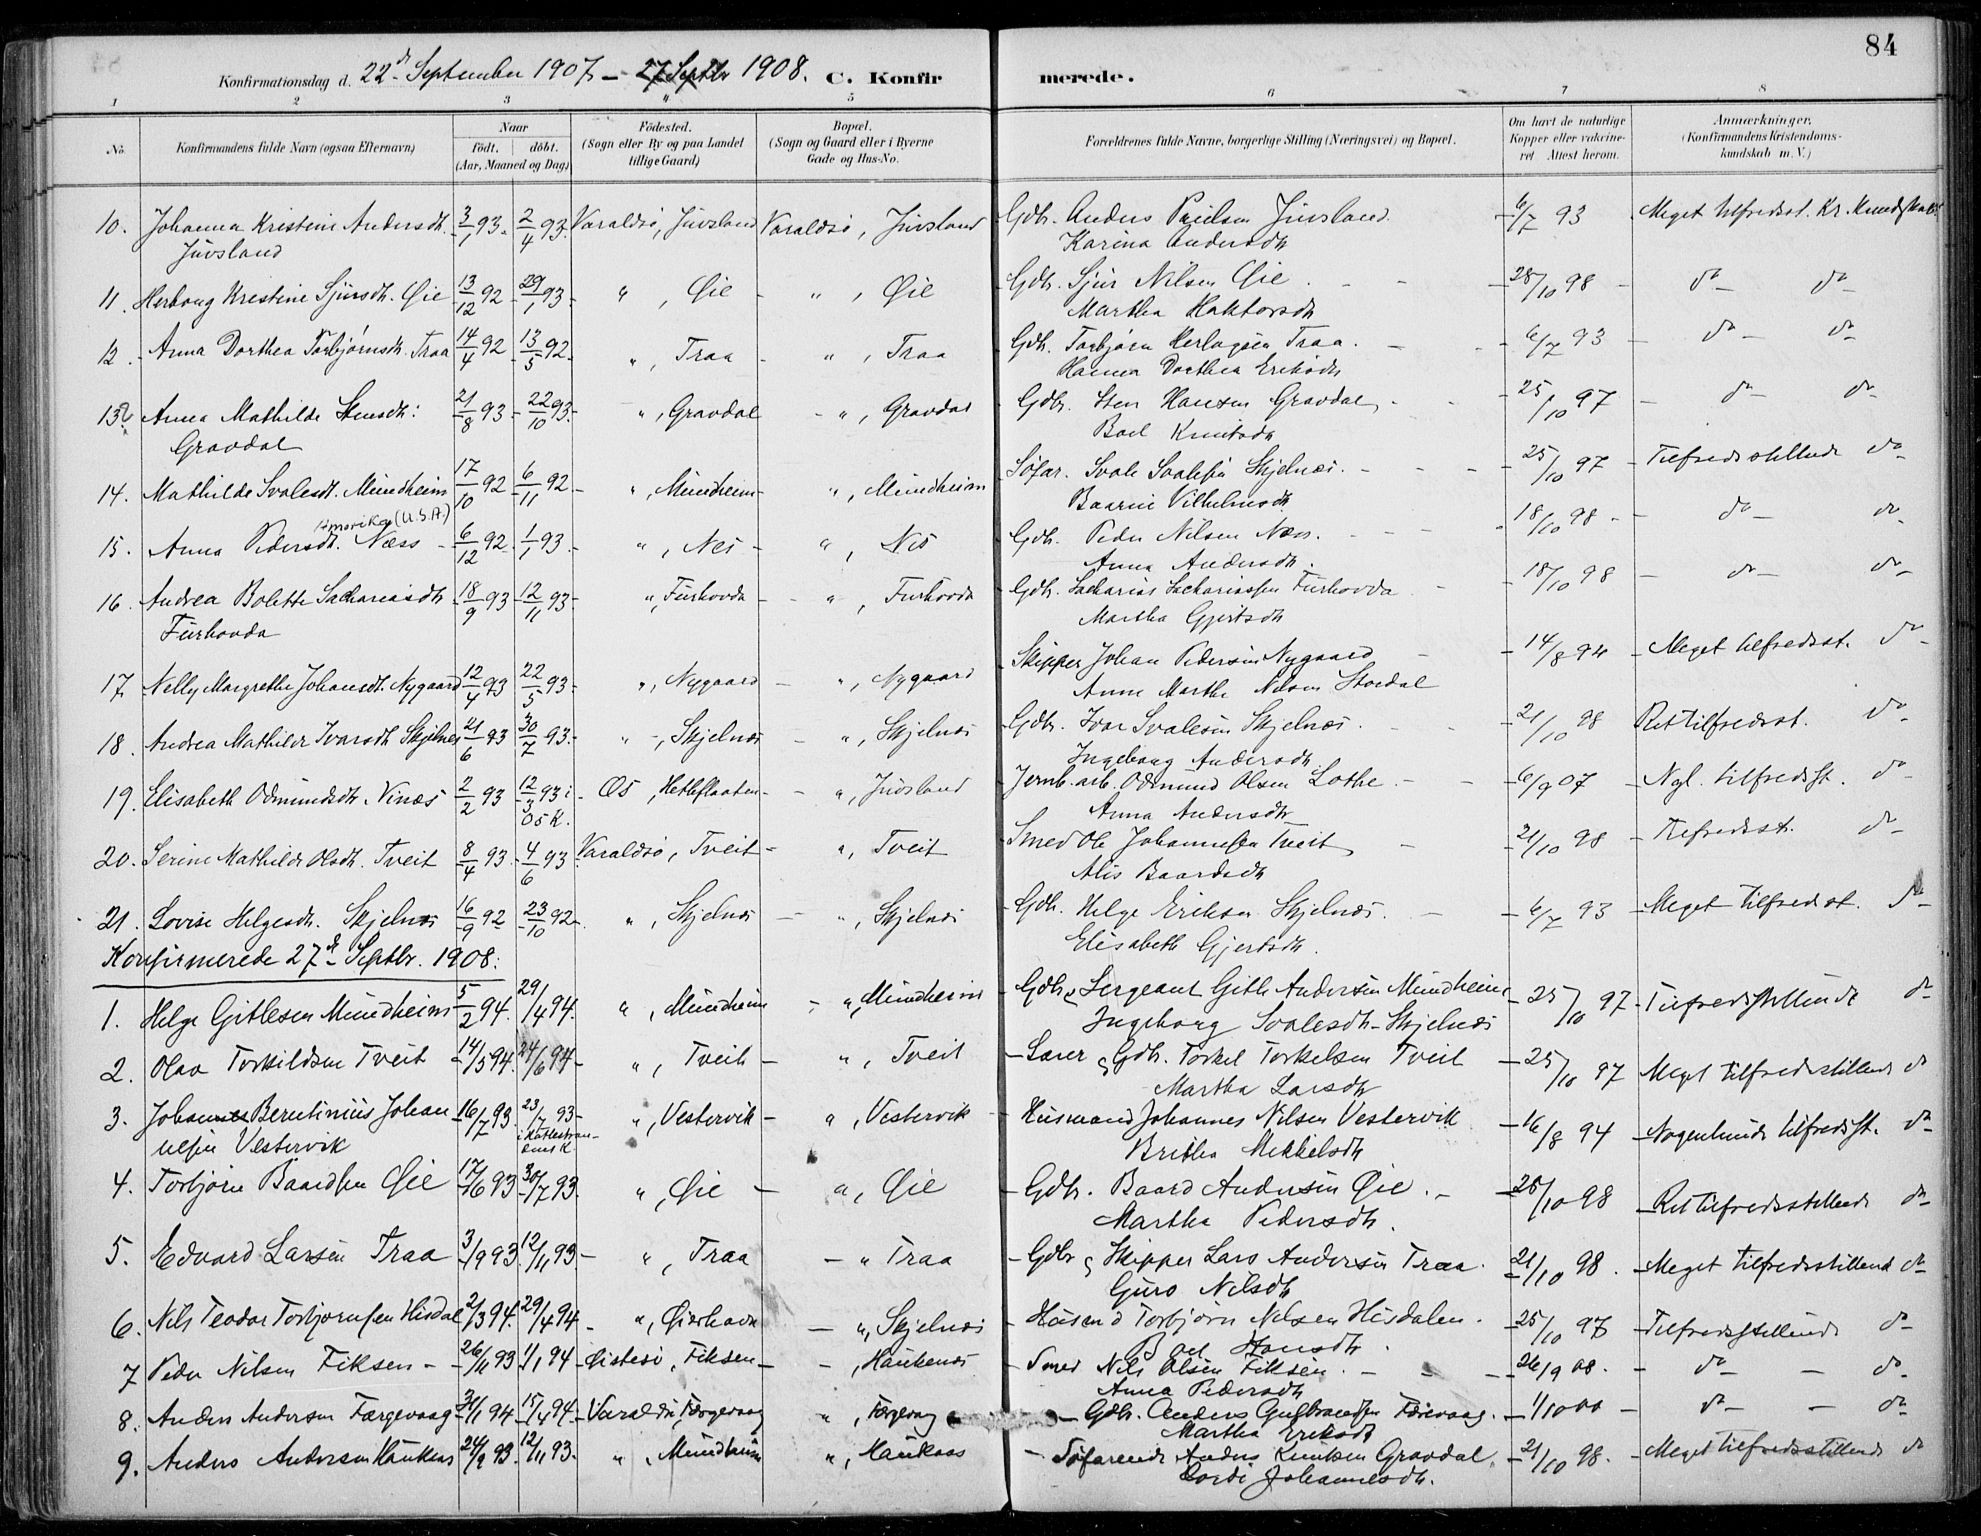 84
Konfirmationsdag d. 22d September 1907 - 27 Septbr 1908. C. Konfirmerede.
1 2 3 4 5 6 7 8
No. Konfirmandens fulde Navn (ogsaa Efternavn) Naar født. døbt. (Aar, Maaned og Dag) Fødested. (Sogn eller By og paa Landet tillige Gaard) Bopæl. (Sogn og Gaard eller i Byerne Gade og Hus-No. Forældrenes fulde Navne, borgerlige Stilling (Næringsvei) og Bopæl. Om havt de naturlige Kopper eller vaccineret. Attest herom. Anmærkninger, (Konfirmandens Kristendomskundskab m. V.)
10. Johanna Kristine Andersdt. 3/1 93. 2/4 93. Varaldsø, Jüvsland Varaldsø, Jüvsland Gdbr. Anders Paulsen Jüvsland 6/7 93 Meget tilfredsst. Kr. Kundskab
Jüvsland Karina Andersdt
11. Herborg Kristine Sjursdt. Øie 13/12 92 29/1 93 " , Øie " , Øie Gdbr. Sjur Nilsen Øie 28/10 98 do do
Martha Haktorsdt
12. Anna Dorthea Torbjørnsdt. Traa 14/4 92 13/5 92 " , Traa " , Traa Gdb. Torbjørn Herlogsen Traa. 6/7 93 do do
Hanna Dorthea Eriksdt
13. Anna Mathilde Stensdt: 21/8 93 22/10 93 " , Gravdal " , Gravdal Gdbr. Sten Hansen Gravdal 25/10 97 do do
Gravdal Boel Knutsdt
14. Mathilde Svalesdt. Mündheim 17/10 92 6/11 92 " , Mündheim " , Mündheim Søfar. Svale Svalesen Skjelnæs. 25/10 97 Tilfredsstillende do
Baarni Vilhelmsdt
Amerika (U.S.A.)
15. Anna Pedersdt. Næss 6/12 92 1/1 93 " , Nes " , Nes Gdbr. Peder Nilsen Næss. 18/10 98 do do
Anna Andersdt.
16. Andrea Bolette Sachariasdt 18/9 93 12/11 93 " , Fürhovda " , Furhovda Gdbr. Sacharias Sachariassen Fürhovda 18/10 98 do do
Fürhovda Martha Gjertsdt
17. Nelly Margrethe Johansdt. Nygaard 12/4 93 22/5 93 " , Nygaard " , Nygaard Skipper Johan Pedersen Nygaard 14/8 94 Meget tilfredsst. do
Anne Marthe Nilsen Stordal
18. Andrea Mathilde Ivarsdt Skjelnes 21/6 93 30/7 93. " , Skjelnæs " , Skjelnæs Gdbr. Ivar Svalesen Skjelnæs. 21/10 98 Ret tilfredsst. do
Ingeborg Andersdt.
19. Elisabeth Odmundsdtr. Vinæs 2/2 93 12/3 93 i Os K. Os, Hetleflaaten " , Jüvsland Jernb. arb. Odmund Olsen Lothe 6/9 07 Ngl. tilfredsst. do
Anna Andersdtr
20. Serine Mathilde Olsdt. Tveit 8/4 93 4/6 93 Varaldsø, Tveit " , Tveit Smed Ole Johannessen Tveit 21/10 98 Tilfredsst. do
Alis Baardsdt
21. Lovise Helgesdt. Skjelnæs 16/9 92 23/10 92 " , Skjelnæs " , Skjelnæs Gdb. Helge Eriksen Skjelnæs. 6/7 93 Meget tilfredsst. do
Elisabeth Gjertsdt.
Konfirmerede 27de Septbr. 1908:
1. Helge Gitlesen Mündheim 5/2 94. 29/4 94. " , Mündheim " , Mündheim Gdbr & Sergeant Gitle Andersen Mündheim 25/10 97 Tilfredsstillende do
Ingeborg Svalesdt. Skjelnæs
2. Olav Torkildsen Tveit 14/5 94. 24/6 94 " , Tveit " , Tveit Lærer & Gdb. Torkel Torkelsen Tveit 25/10 97 Meget tilfredsstillende do
Martha Larsdt
3. Johannes Berntinius Johan- 16/7 93. 23/7 93 " , Vestervik " , Vestervik Husmand Johannes Nilsen Vestervik 16/8 94 Nogenlunde tilfredsst. do
nessen Vestervik Britha Mikkelsdt
4. Torbjørn Baardsen Øie 17/6 93 30/7 93. " , Øie " , Øie Gdbr. Baard Andersen Øie. 25/10 98 Ret tilfredsstillende do
Martha Pedersdt.
5. Edvard Larsen Traa 3/9 93 12/11 93 " , Traa " Traa Gdbr & Skipper Lars Andersen Traa 21/10 98. Meget tilfredsstillend do
Guro Nilsdt
6. Nils Teodor Torbjørnsen Hisdal 2/3 94. 29/4 94 " , " , Skjelnæs Husmd Torbjørn Nilsen Hisdalen. 25/10 97 Tilfredsstillende do
7 Peder Nilsen Fiksen 26/11 93 1/1 94 Østesø, Fiksen " , Haukenæs Smed Nils Olsen Fiksen. 26/9 08. do do
Anna Pedersdt
8. Anders Andersen Færgevaag 31/1 94. 15/4 94 Varaldsø, Færgevaag " , Færgevaag Gdbr. Anders Guttormsen Færevaag. 1/10 00 do do
Martha Eriksdt
9. Anders Andersen Haukans 24/9 93. 12/11 93. " , Mündheim " , Haukaas Søfarende Anders Knutsen Gravdal. 21/10 98. Meget tilfredsstillende do
Cordi Johannesdt.